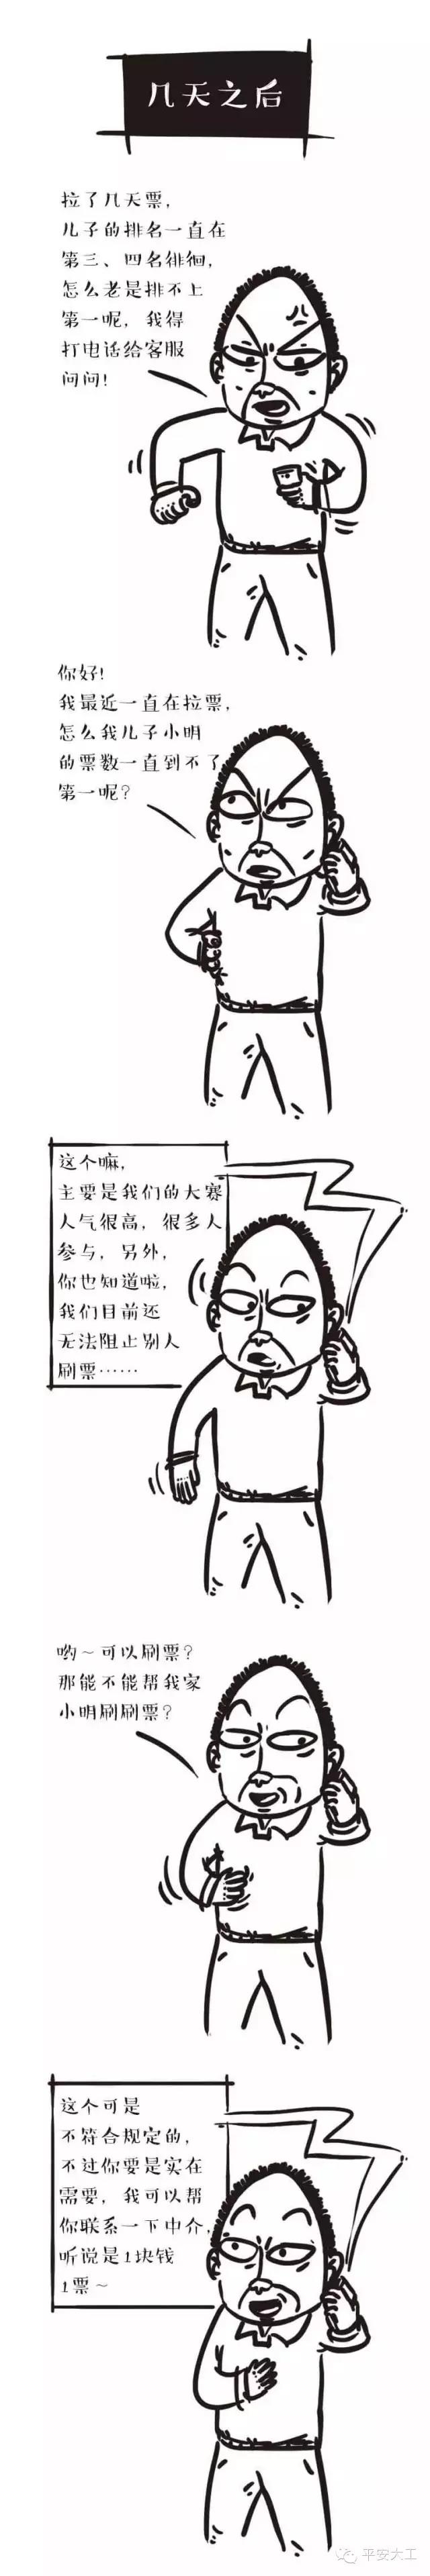 几天之后
拉了几天票，
儿子的排名一直在
第三、四名徘徊，
怎么老是排不上
第一呢，我得
打电话给客服
问问！
你好！
我最近一直在拉票，
怎么我儿子小明
的票数一直到不了
第一呢？
这个嘛，
主要是我们的大赛
人气很高，很多人
参与，另外，
你也知道啦，
我们目前还
无法阻止别人
刷票……
哟～可以刷票？
那能不能帮我家
小明刷刷票？
这个可是
不符合规定的，
不过你要是实在
需要，我可以帮
你联系一下中介，
听说是1块钱
1票～
平安大工